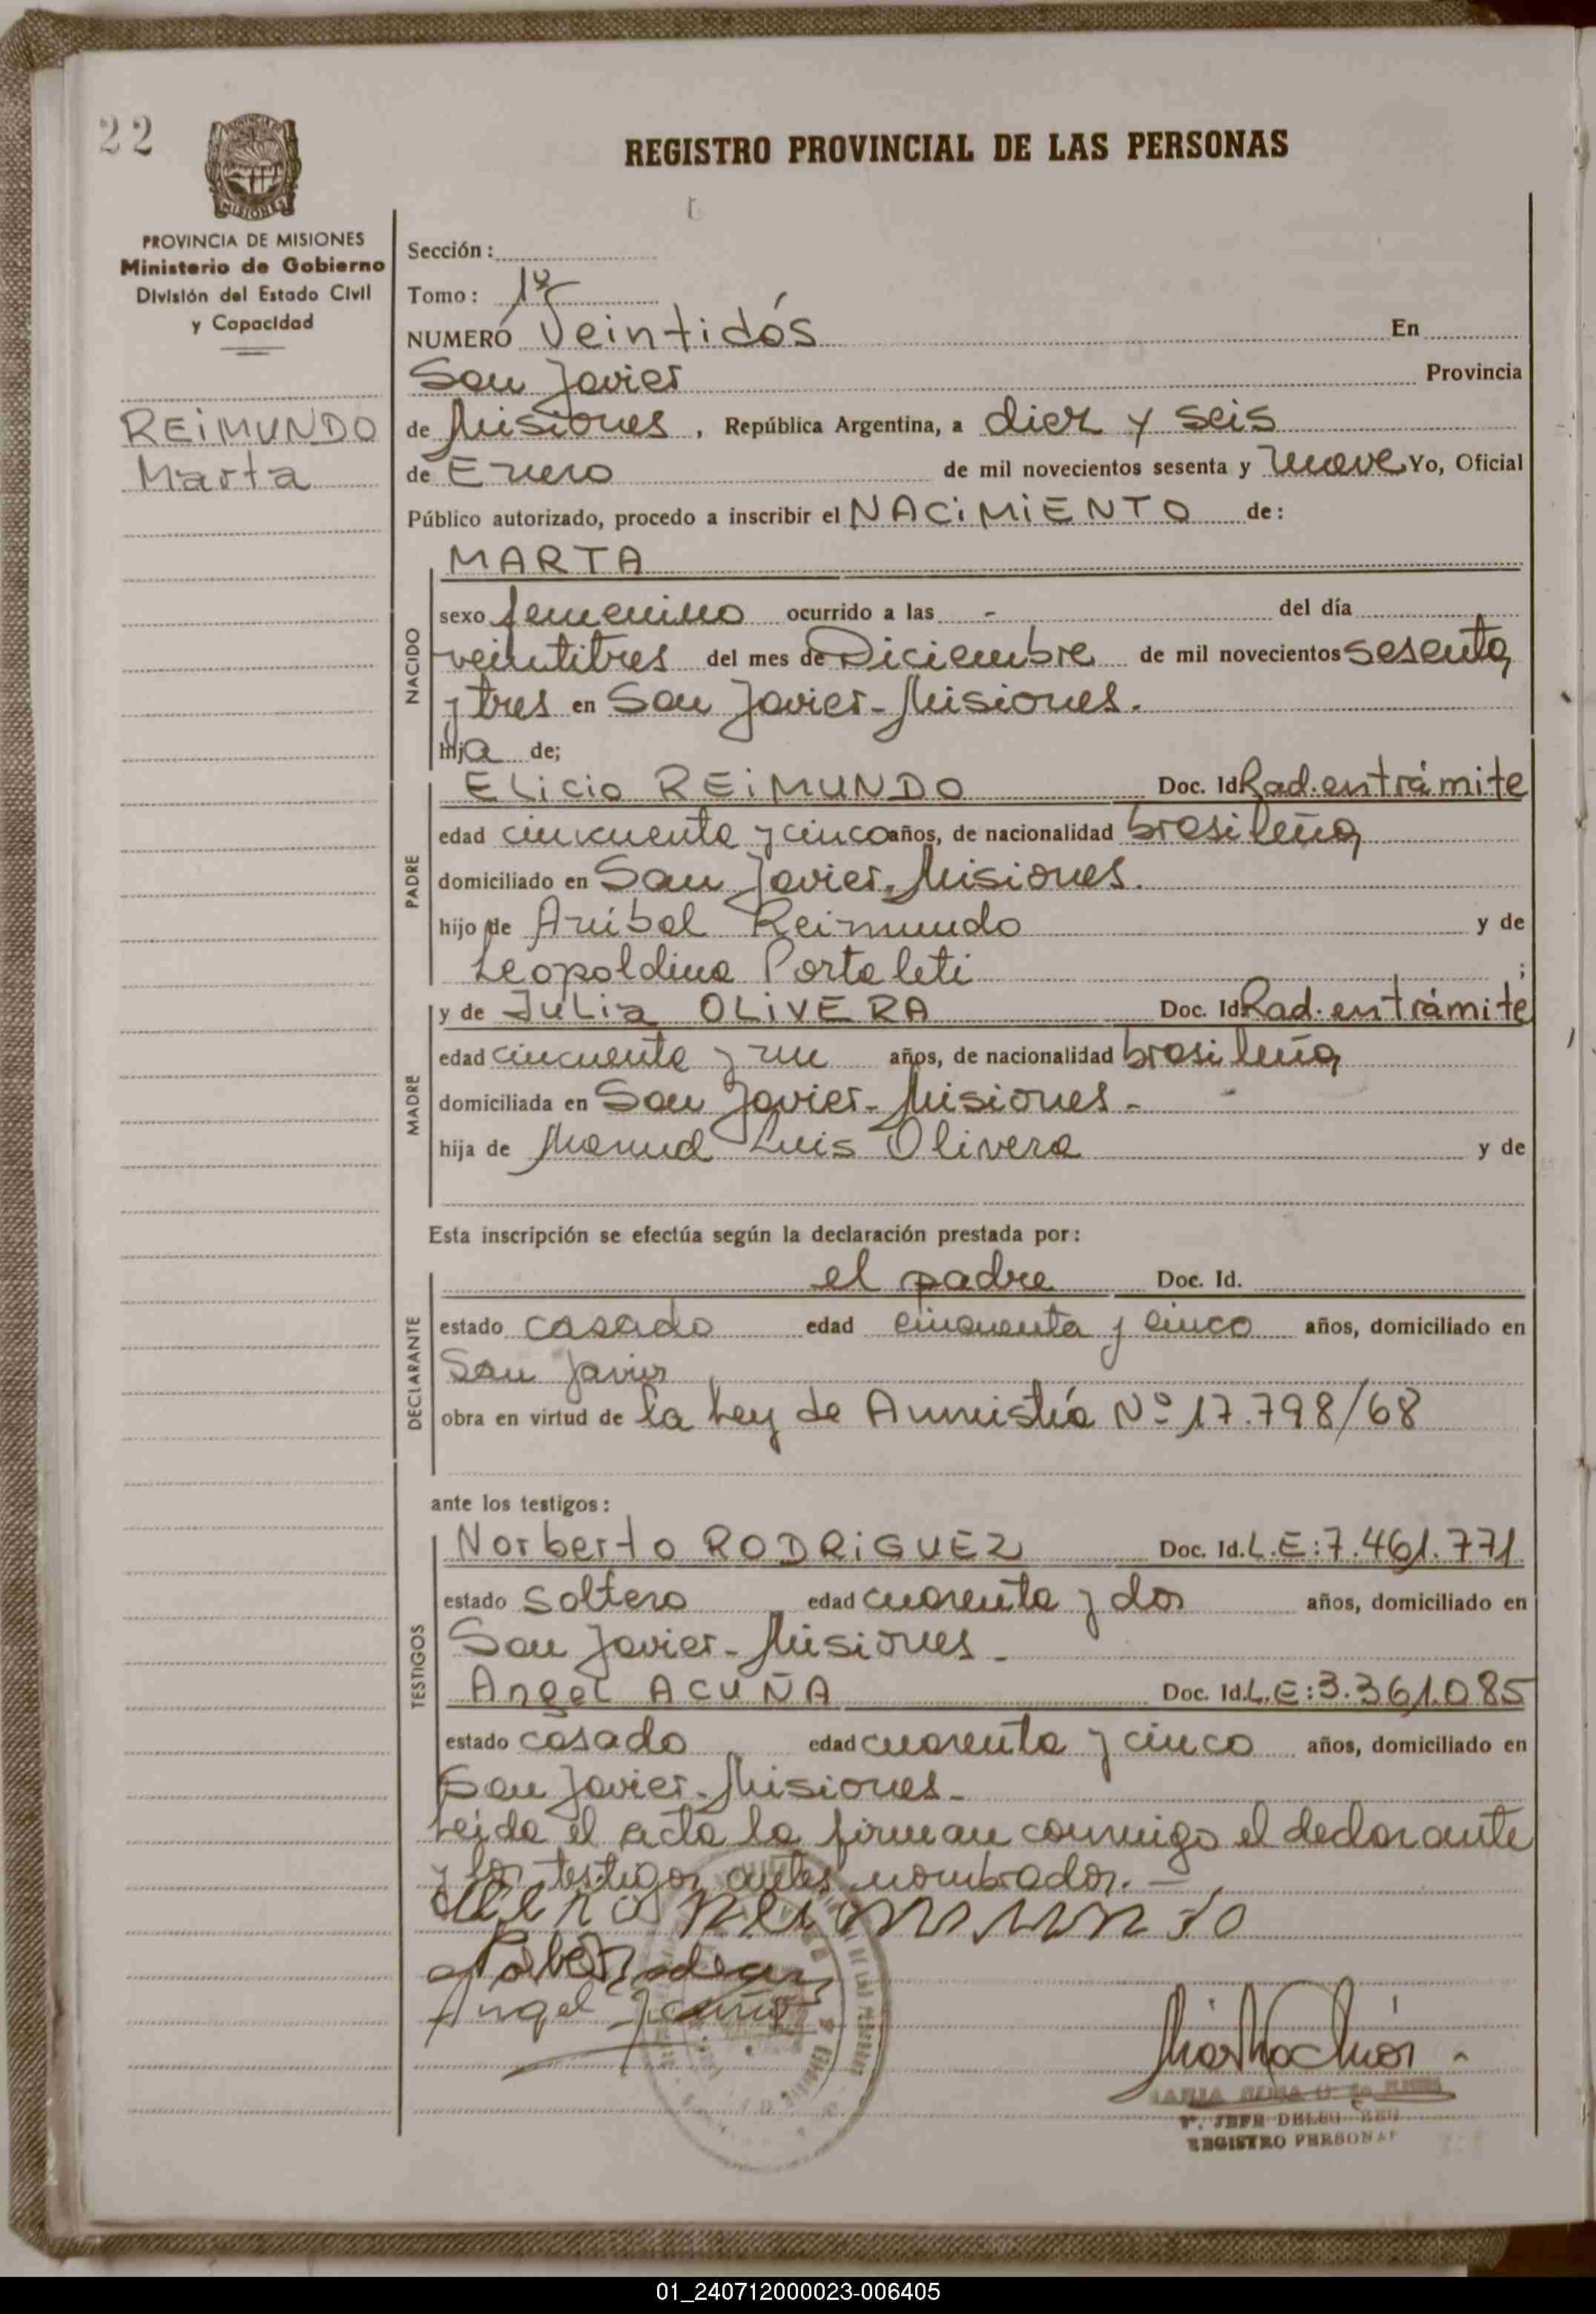 22
REGISTRO PROVINCIAL DE LAS PERSONAS
MISIONES
PROVINCIA DE MISIONES
Ministerio de Gobierno
División del Estado Civil
y Capacidad
REIMUNDO
Marta
Sección:
Tomo: 1º
NUMERO Veintidós En
San Javier Provincia
de Misiones, República Argentina, a diez y seis
de Enero de mil novecientos sesenta y nueve Yo, Oficial
Público autorizado, procedo a inscribir el NACIMIENTO de:
NACIDO
MARTA
sexo femenino ocurrido a las - del día
veintitres del mes de Diciembre de mil novecientos sesenta
y tres en San Javier-Misiones.
hija de;
PADRE
Elicio REIMUNDO Doc. Id Rad. en trámite
edad cincuenta y cinco años, de nacionalidad brasileña
domiciliado en San Javier-Misiones.
hijo de Anibal Reimundo y de
Leopoldina Portaleti ;
MADRE
y de Julia OLIVERA Doc. Id Rad. en trámite
edad cincuenta y un años, de nacionalidad brasileña
domiciliada en San Javier-Misiones-
hija de Manuel Luis Olivera y de
Esta inscripción se efectúa según la declaración prestada por:
DECLARANTE
el padre Doc. Id.
estado casado edad cincuenta y cinco años, domiciliado en
San Javier
obra en virtud de la Ley de Amnistía Nº 17.798/68
ante los testigos:
TESTIGOS
Norberto RODRIGUEZ Doc. Id. L.E:7.461.771
estado soltero edad cuarenta y dos años, domiciliado en
San Javier-Misiones-
Angel ACUÑA Doc. Id. L.E:3.361.085
estado casado edad cuarenta y cinco años, domiciliado en
San Javier-Misiones-
Leida el acta la firman conmigo el declarante
y los testigos antes nombrados.-
Angel Acuña
REGISTRO PERSONAS
01_240712000023-006405